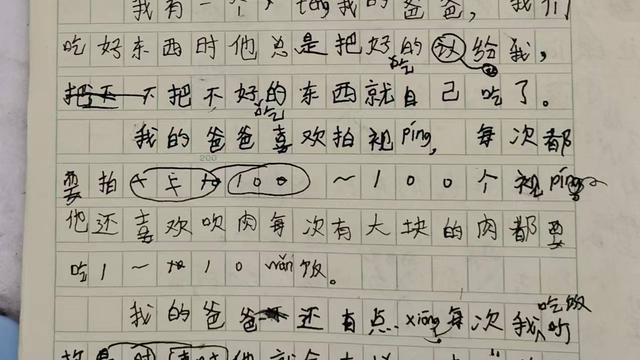 我有一个 téng我的爸爸，我们
吃好东西时他总是把好吃的让给我，
不把不好吃的东西就自己吃了。
我的爸爸喜欢拍视píng，每次都
200
要拍100～100个视píng
他还喜欢吹肉每次有大块的肉都要
吃1～10wǎn饭。
我的爸爸还有点xiōng每次我吃饭
他就会